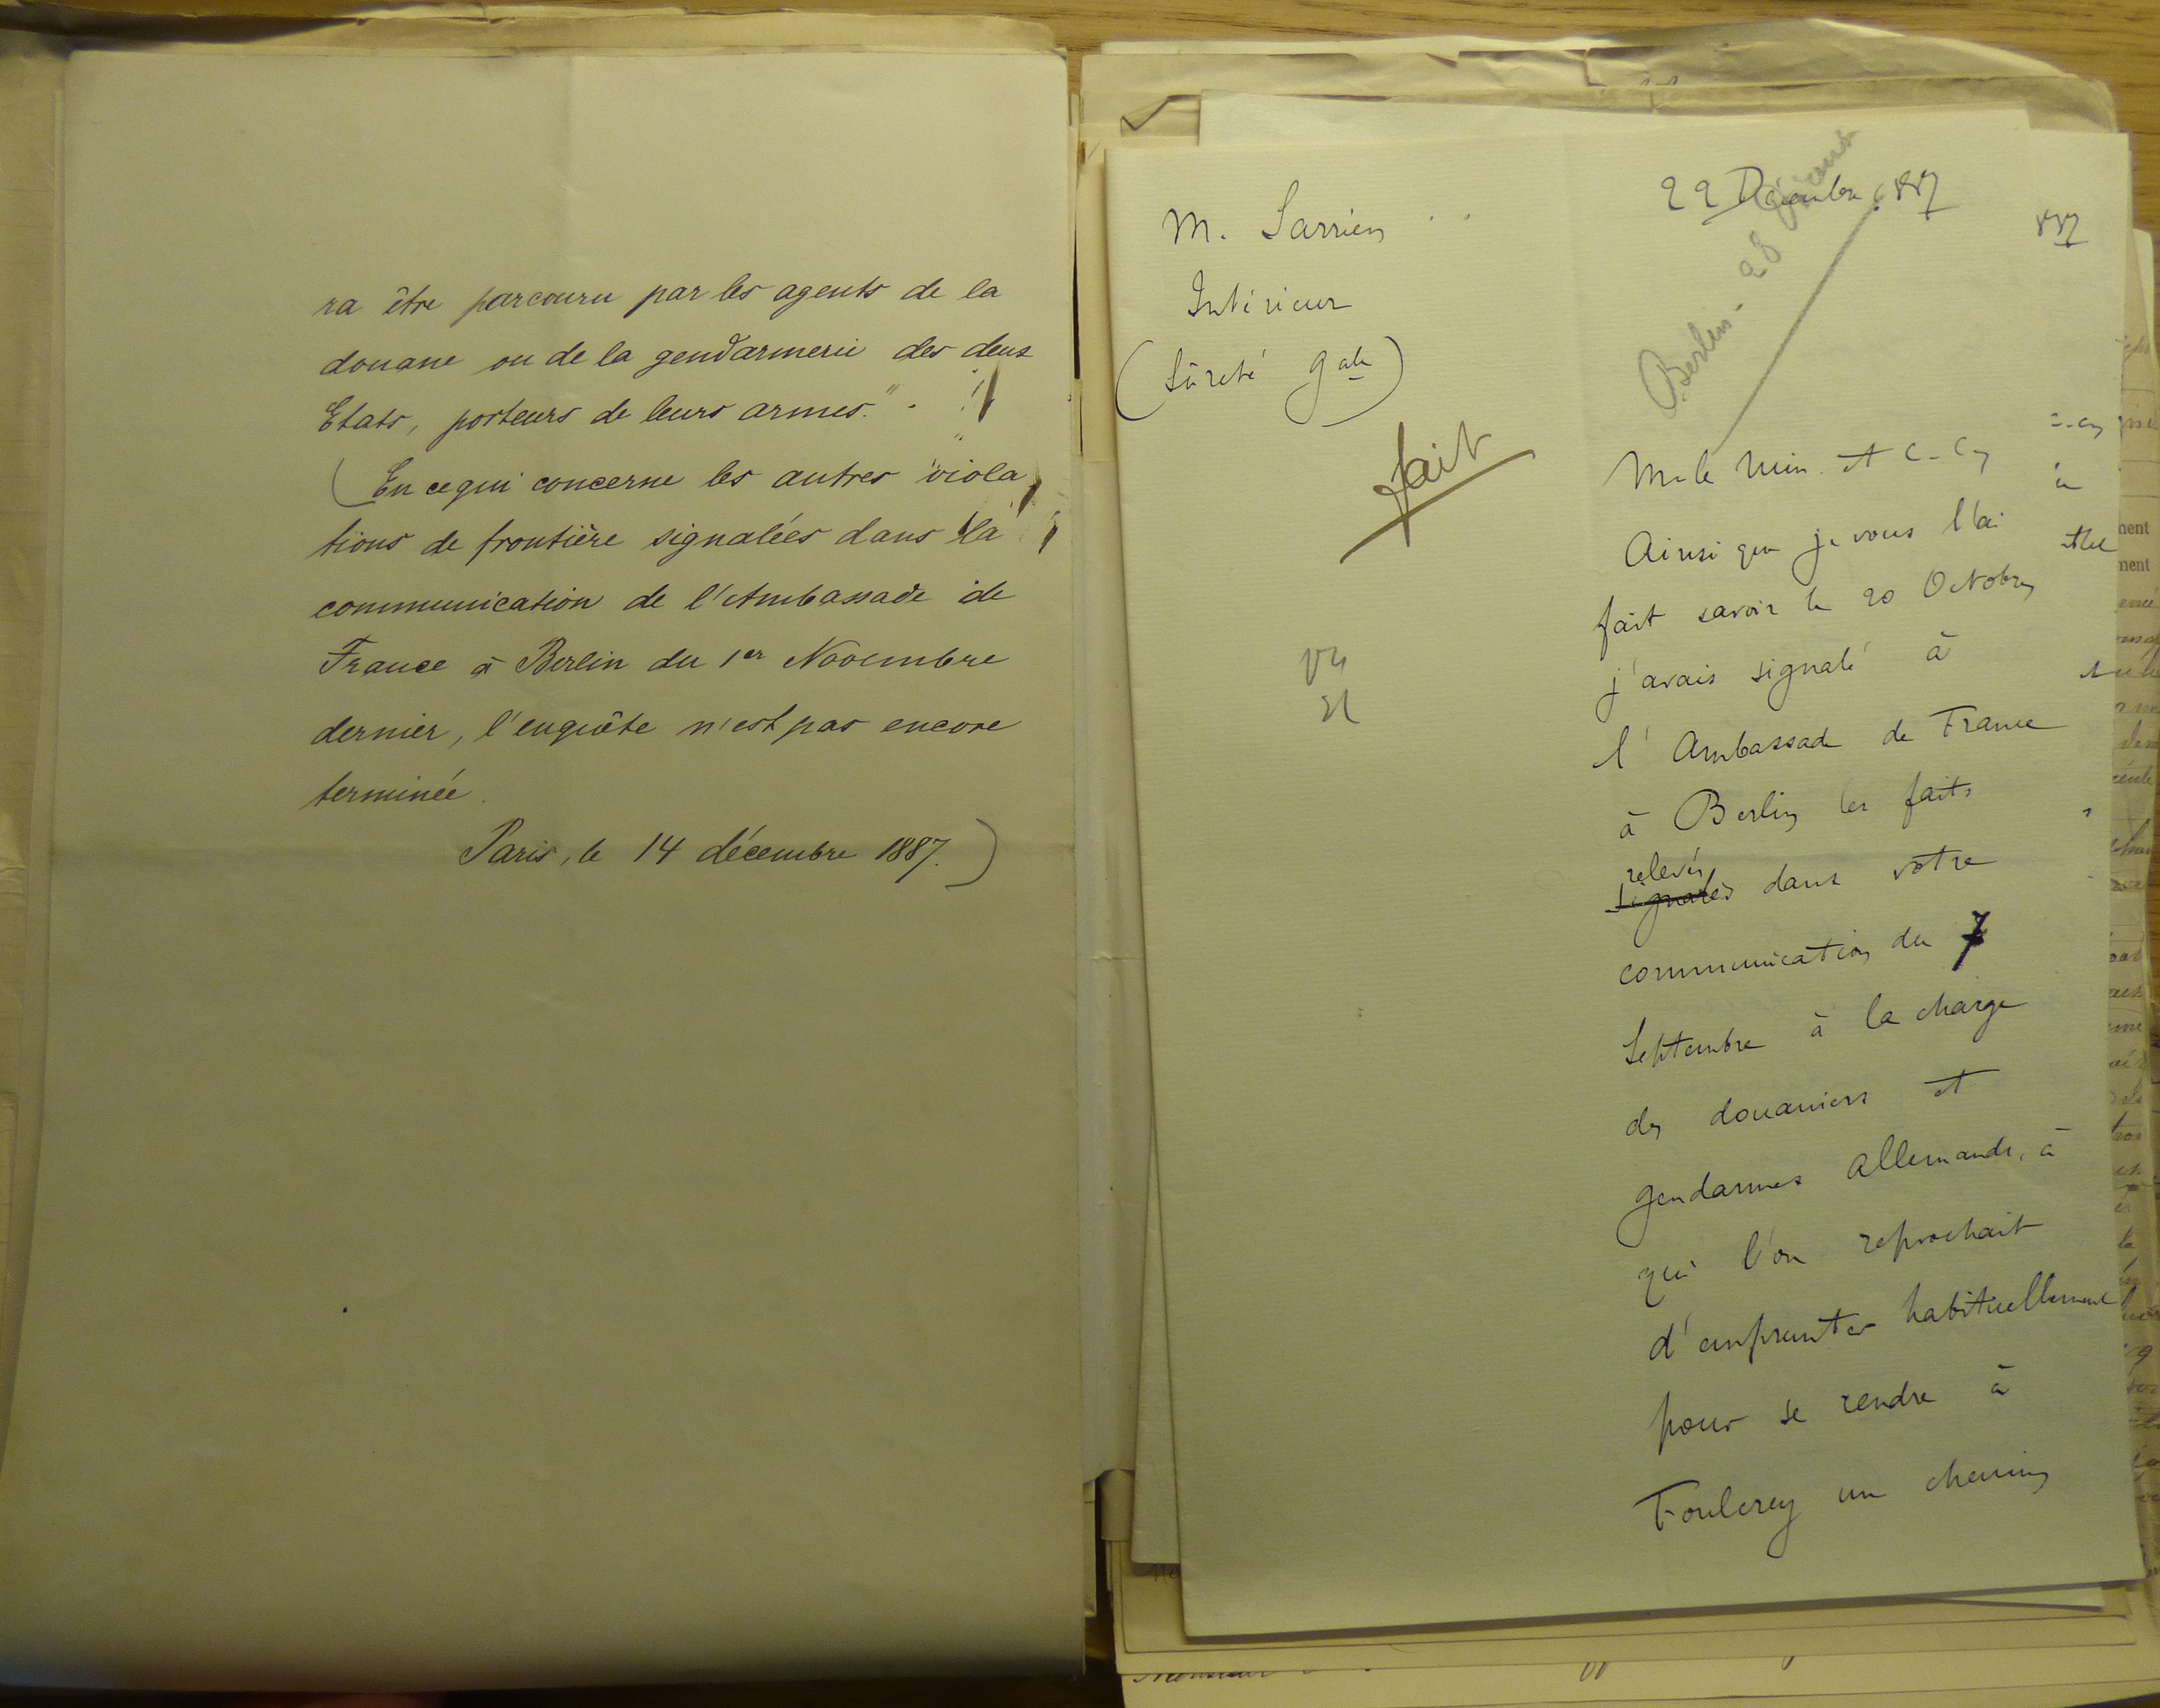 ra être parcouru par les agents de la
douane ou de la gendarmerie des deux
Etats, porteurs de leurs armes."
(En ce qui concerne les autres viola
tions de frontière signalées dans la
communication de l'Ambassade de
France à Berlin du 1er Novembre
dernier, l'enquête n'est pas encore
terminée.
Paris, le 14 décembre 1887.)
M. Sarrien
Intérieur
(Sûreté Gale)
fait
22 Décembre 1887
Berlin - 28
M. le Min. et c. Cn
Ainsi que je vous l'ai
fait savoir le 20 Octobre
j'avais signalé à
l'Ambassade de France
à Berlin les faits
relevés
signalés dans votre
communication du 7
Septembre à la charge
des douaniers et
gendarmes allemands, à
qui l'on reprochait
d'emprunter habituellement
pour se rendre à
Foulcrey un chemin